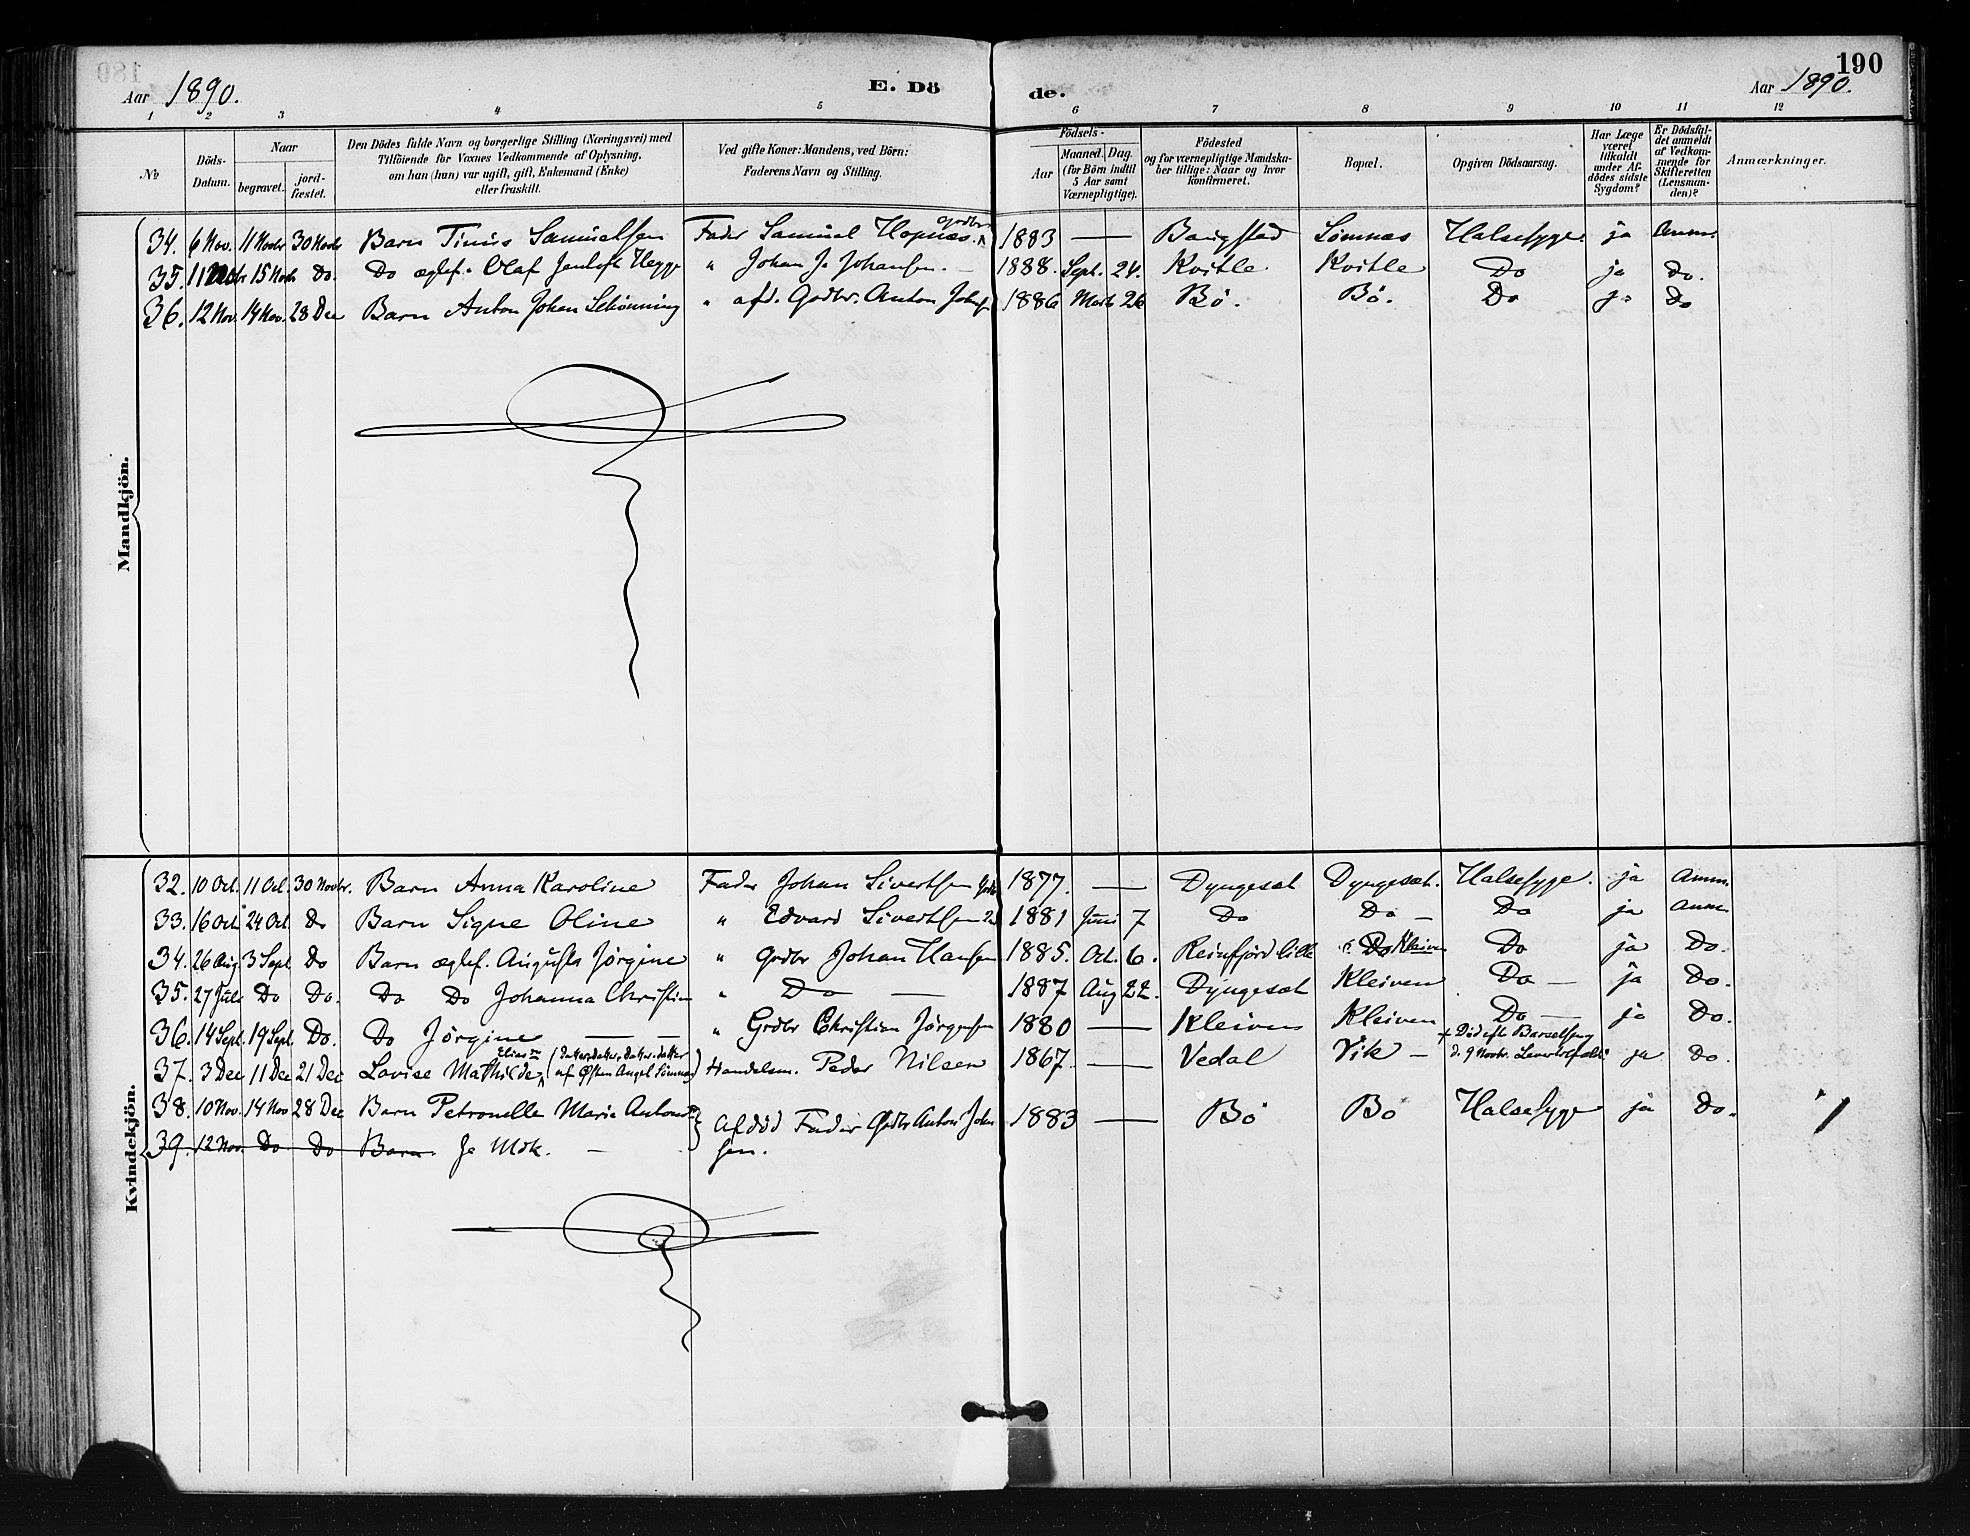 Aar 1890. E. Dö de. 190
Aar 1890.
1 2 3 4 5 6 7 8 9 10 11 12
№ Döds-Datum. Naar begravet. jord-fæstet. Den Dödes fulde Navn og borgerlige Stilling (Næringsvei) med Tilföiende for Voxnes Vedkommende af Oplysning, om han (hun) var ugift, gift, Enkemand (Enke) eller fraskilt. Ved gifte Koner: Mandens, ved Börn: Faderens Navn og Stilling. Födsels- Aar Maaned. Dag. (for Börn indtil 5 Aar samt Værnepligtige). Födested og for værnepligtige Mandskaber tillige: Naar og hvor konfirmeret. Bopæl. Opgiven Dödsaarsag. Har Læge været tilkaldt under Afdödes sidste Sygdom? Er Dödsfaldet anmeldt af Vedkommende for Skifteretten (Lensmanden)? Anmærkninger.
Mandkjön.
34. 6 Nov. 11 Novbr 30 Novbr Barn Tinius Samuelsen Fader Samuel Hopnæs Grdbr 1883 — Bangstad Sömnæs Halsesyge ja Anm.
35. 11 Novbr 15 Novbr Do. Do ægtef. Olaf Hegge " Johan J. Johansen. — 1888. Sept. 24. Kvitle Kvitle Do ja Do.
36. 12 Nov. 14 Nov. 28 Dec Barn Anton Johan Schönning " afd. Grdbr. Anton Johnsen 1886 Marts 26 Bö. Bö. Do ja Do
Kvindekjön.
32. 10 Oct. 11 Oct. 30 Novbr. Barn Anna Karoline Fader Johan Sivertsen Grdbr 1877. — Dyngesæt Dyngesæt. Halsesyge. ja Anm.
33. 16 Oct. 24 Oct. Do Barn Signe Oline " Edvard Sivertsen 1881 Juni 7 Do Do — Do ja Anm.
34. 26 Aug 3 Sept. Do Barn ægtef. Augusta Jörgine " Grdbr Johan Hansen 1885. Oct. 6. Reinfjord lille Do Kleiven Do ja Do.
35. 27 Juli Do Do. Do Do Johanna Christin " Do — 1887 Aug 22. Dyngesæt Kleiven Do — ja Do.
36. 14 Sept. 19 Sept. Do. Do Jörgine — " Grdbr Christian Jörgensen 1880 — Kleiven Kleiven Do — ja Do.
37. 3 Dec 11 Dec 21 Dec Lovise Mathilde Handelsm. Peder Nilsen 1867. — Vedal Vik — Död eft. Barselseng d. 9 Novbr. ja Do.
38. 10 Nov. 14 Nov 28 Dec Barn Petronelle Maria Afdöd Fader Grdbr Anton John 1883 — Bö Bö Halsesyge ja Do.
39. 12 Nov. Do Do Barn. Je Mdk. — sen.